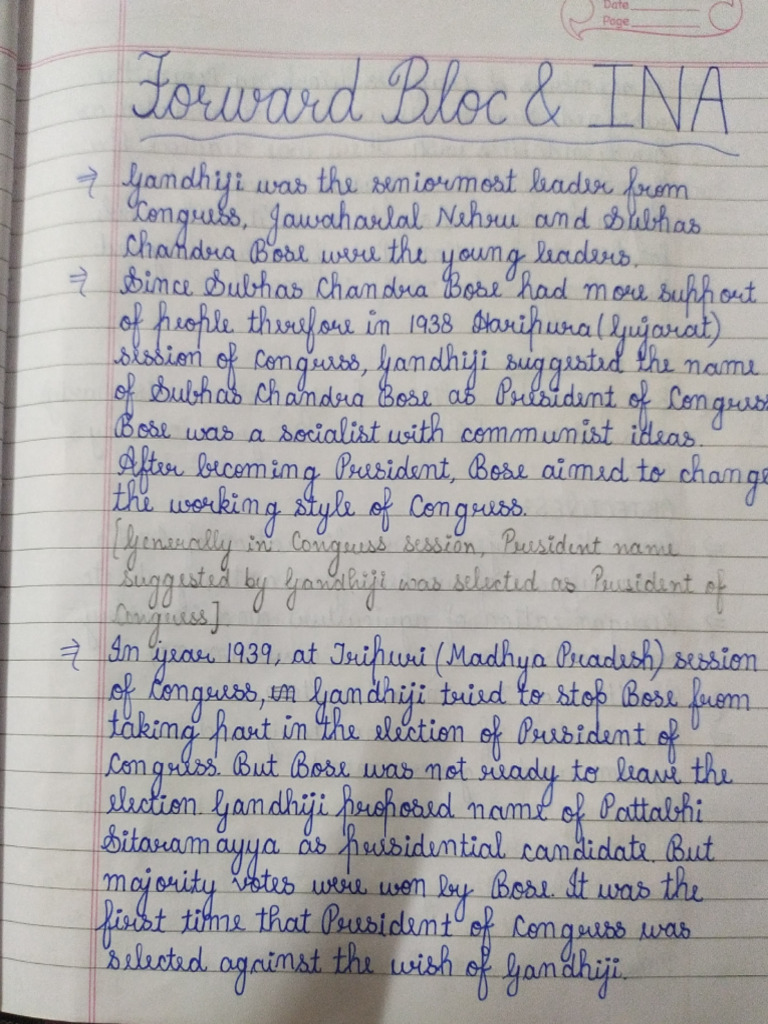 Date
Page
Forward Bloc & INA
⇒ Gandhiji was the seniormost leader from
Congress, Jawaharlal Nehru and Subhas
Chandra Bose were the young leaders.
⇒ Since Subhas Chandra Bose had more support
of people therefore in 1938 Haripura (Gujarat)
session of Congress, Gandhiji suggested the name
of Subhas Chandra Bose as President of Congress
Bose was a socialist with communist ideas.
After becoming President, Bose aimed to change
the working style of Congress.
[Generally in Congress session, President name
suggested by Gandhiji was selected as President of
Congress]
⇒ In year 1939, at Tripuri (Madhya Pradesh) session
of Congress, Gandhiji tried to stop Bose from
taking part in the election of President of
Congress. But Bose was not ready to leave the
election. Gandhiji proposed name of Pattabhi
Sitaramayya as presidential candidate. But
majority votes were won by Bose. It was the
first time that President of Congress was
selected against the wish of Gandhiji.